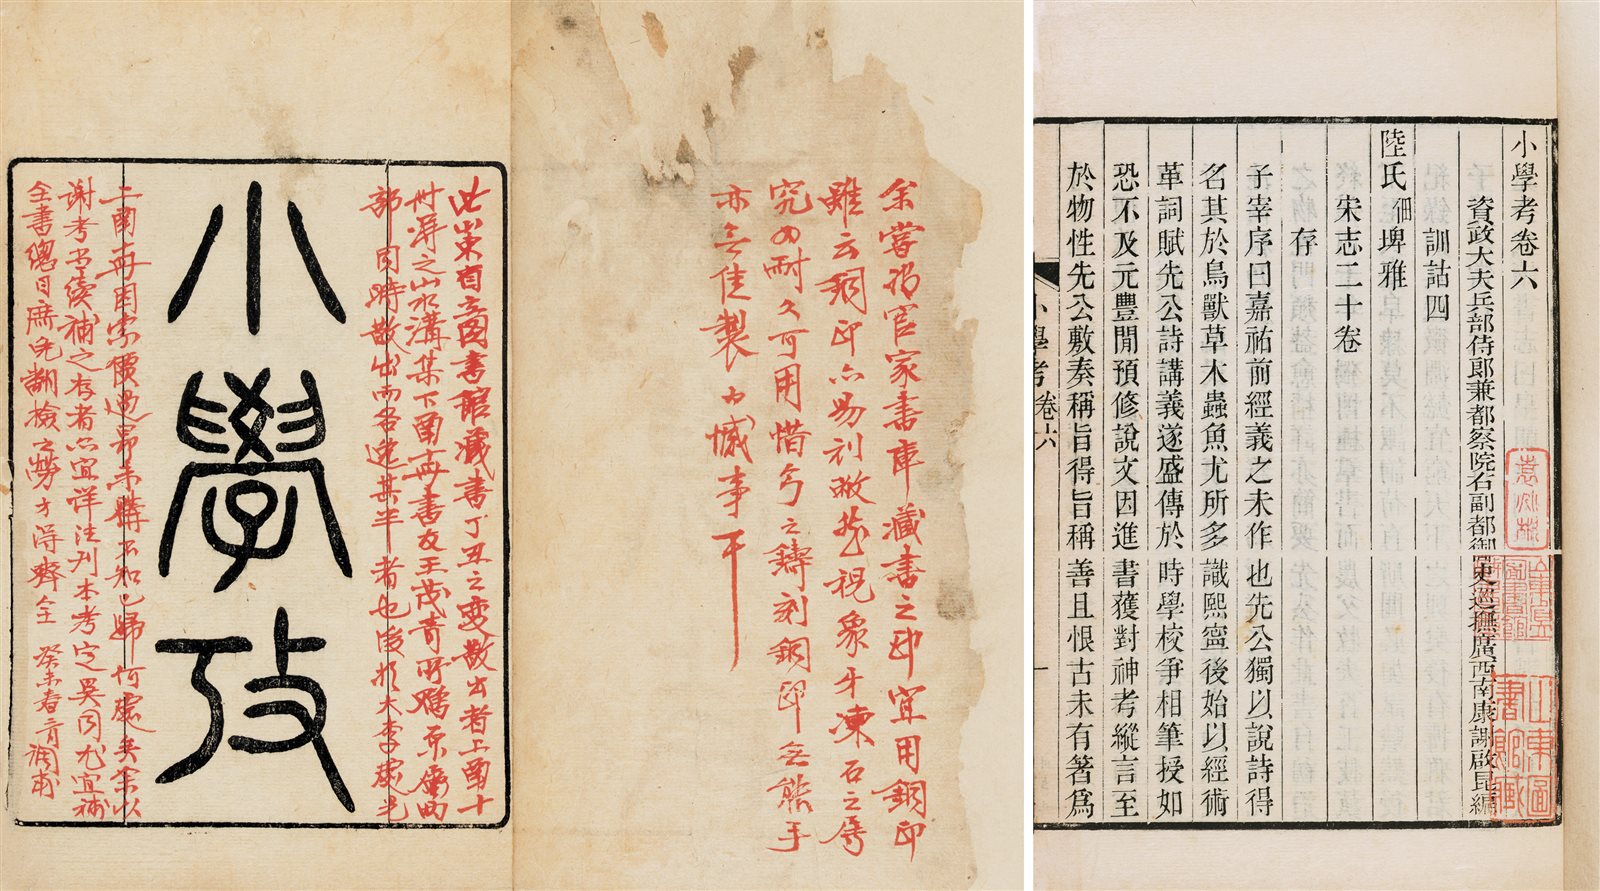 余嘗谓官家書庫藏書之印宜用銅印
雖云銅印亦易刓敝然視象牙凍石之屬
究为耐久可用惜今之鑄刻銅印無能手
亦無佳製为憾事耳
此山東省立圖書館藏書丁丑之變散出者上函十
册得之山水溝某下函十册書友王茂青所贈原係两
部同時散出而各逸其半者也後於大李處見
小學攷
二函再因索價過昻未購不知已歸何處矣余以
謝考书續補之存者亦宜詳注刊本考定異同尤宜補
全書總目庶免翻檢之勞方得齊全 癸未春 潤甫
小學考卷六
資政大夫兵部侍郎兼都察院右副都御史巡撫廣西南康謝啟昆編
訓詁四
陸氏佃埤雅
宋志二十卷
存
子宰序曰嘉祐前經義之未作也先公獨以說詩得
名其於鳥獸草木蟲魚尤所多識熙寧後始以經術
革詞賦先公詩講義遂盛傳於時學校爭相筆授如
恐不及元豐閒預修說文因進書獲對神考縱言至
於物性先公敷奏稱旨得旨稱善且恨古未有著爲
小學考 卷六
一
山東省立圖書館
山東圖書館臧